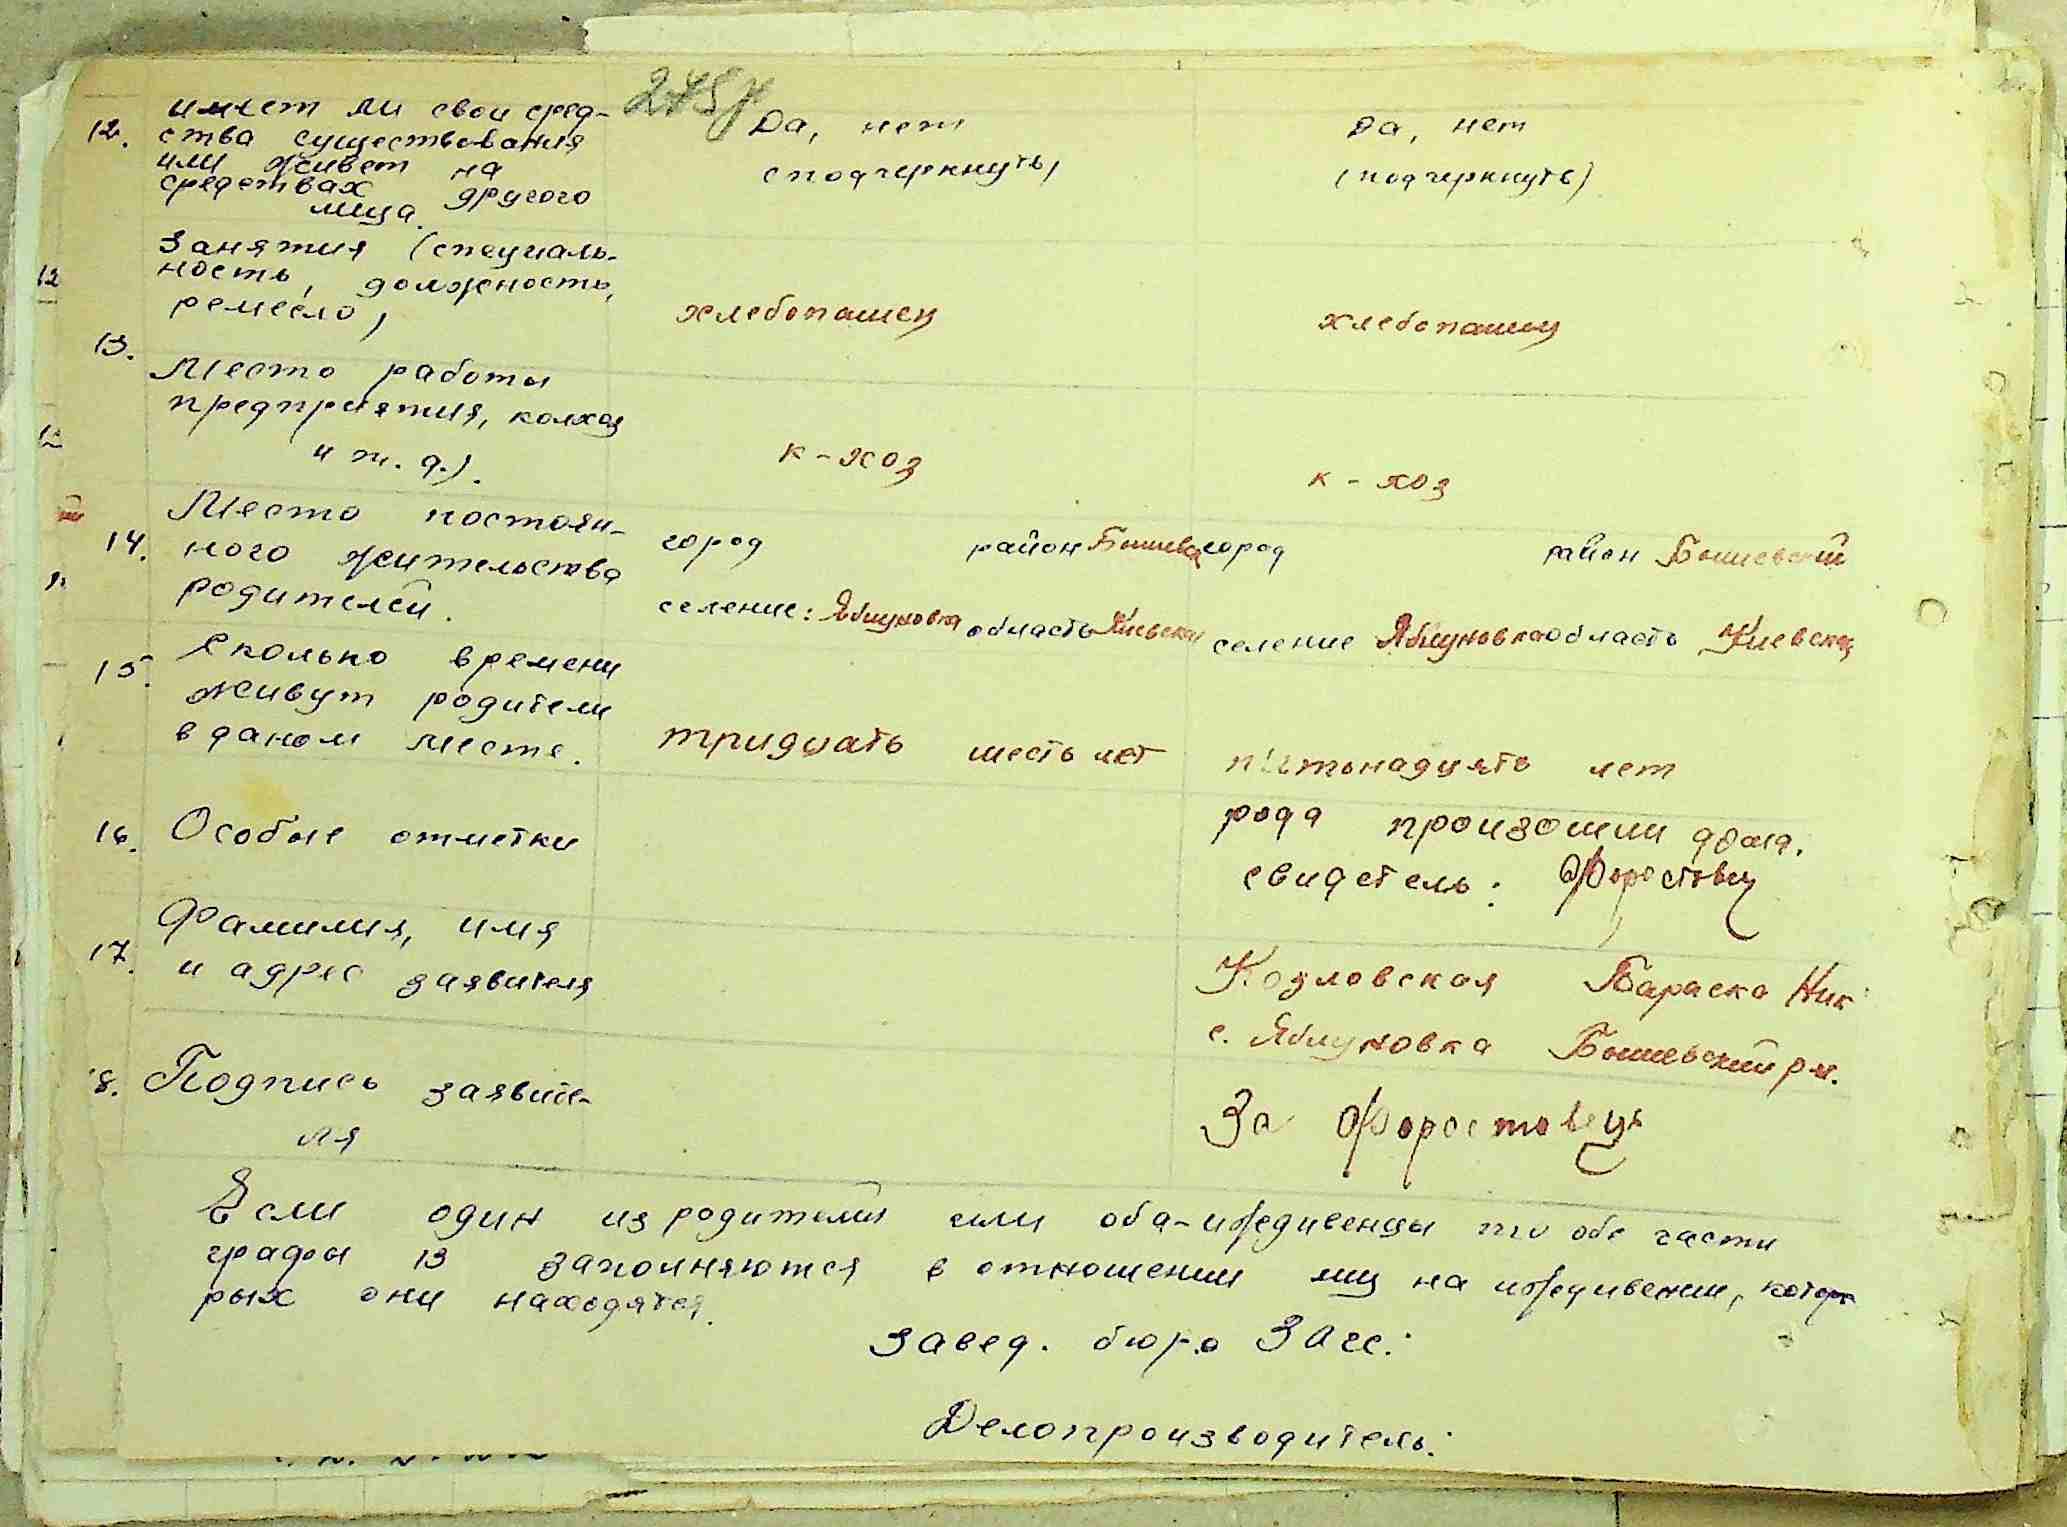 12. имеет ли свои сред-
ства существования
или живет на
средствах другого
лица.
Да, нет
(подчеркнуть)
Да, нет
(подчеркнуть)
занятия (специаль-
ность, должность,
ремесло)
хлебопашец
хлебопашец
13. Место работы
предприятия, колхоз
и т. д.).
к-хоз
к-хоз
14. Место постоян-
ного жительства
родителей.
город район Бышевск
селение: Яблуновка область Киевская
город район Бышевский
селение Яблуновка область Киевская
15. Сколько времени
живут родители
в даном месте.
тридцать шесть лет
пятьнадцять лет
16. Особые отметки
рода произошли дома.
свидетель: Форостовец
17. Фамилия, имя
и адрес заявителя
Козловская Параска Ник
с. Яблуновка Бышевский р-н.
8. Подпись заявите-
ля
За Форостовець
Если один из родителей или оба-иждивенцы то обе части
графы 13 заполняются в отношении лиц на иждивении, котор
рых они находятся.
Завед. бюро ЗАГС:
Делопроизводитель: